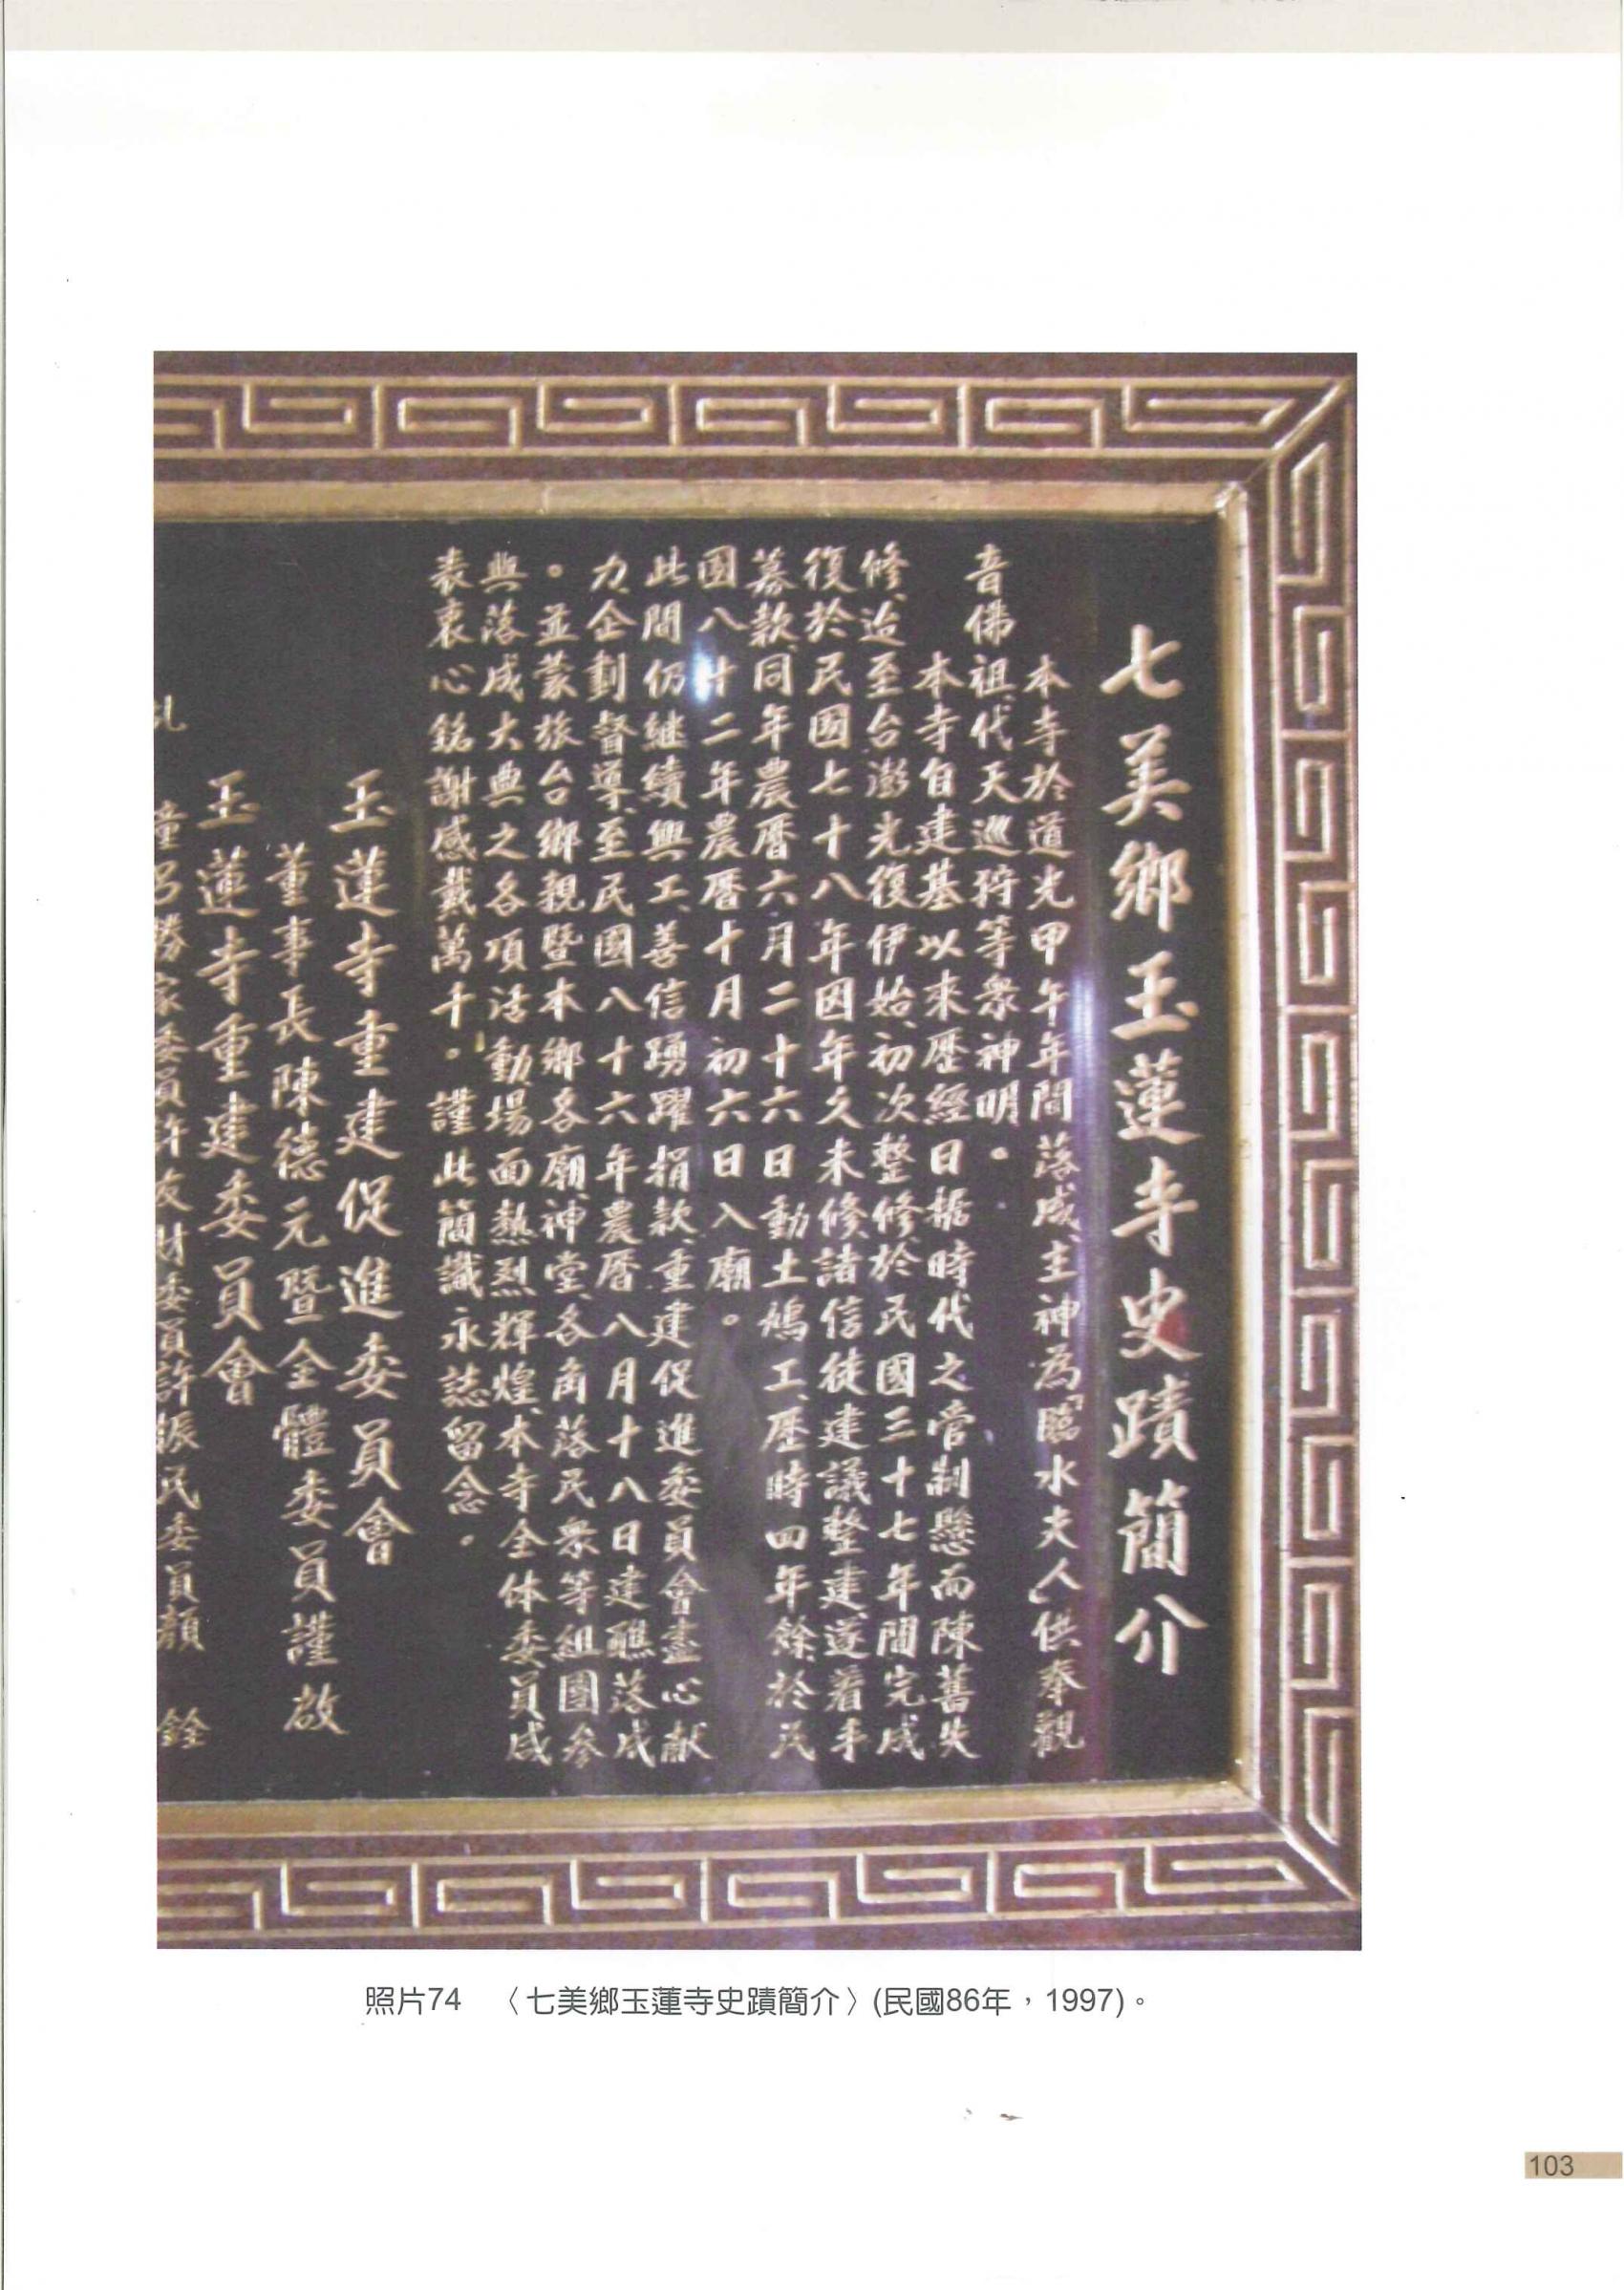 七美鄉玉蓮寺史蹟簡介
本寺於道光甲午年間落成、主神為「臨水夫人」供奉觀
音佛祖、代天巡狩等衆神明。
本寺自建基以來歷經日據時代之管制懸而陳舊失
修、迨至台澎光復伊始、初次整修、於民國三十七年間完成
復於民國七十八年因年久未修、諸信徒建議整建、遂着手
募款、同年農曆六月二十六日動土鳩工、歷時四年餘、於民
國八十二年農曆十月初六日入廟。
此間仍継續興工、善信踴躍捐款、重建促進委員會盡心献
力、企劃督導、至民國八十六年農曆八月十八日建醮落成
。並蒙旅台鄉親暨本鄉各廟、神堂、各角落民衆等組團參
與落成大典之各項活動、場面熱烈輝煌、本寺全体委員咸
表衷心銘謝感戴萬千。謹此簡識永誌留念。
玉蓮寺重建促進委員會
董事長陳德元暨全體委員謹啟
玉蓮寺重建委員會
委員許友財委員許振民委員顏 銓
照片74 〈七美鄉玉蓮寺史蹟簡介〉(民國86年，1997)。
103